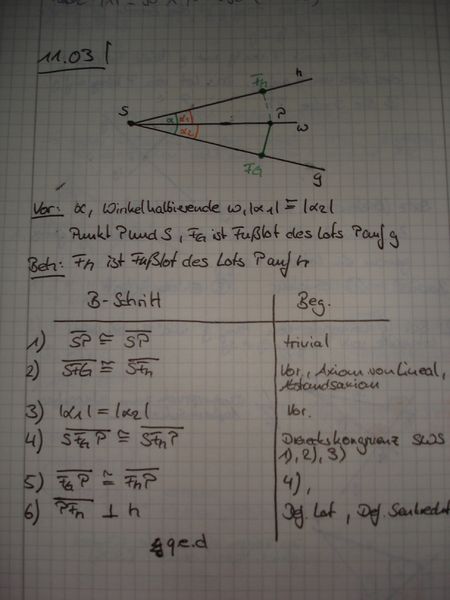 11.03
h
Fh
S
α α1
P
w
α2
FG
g
Vor: α, Winkelhalbierende w, |α1| ≅ |α2|
Punkt P und S, FG ist Fußlot des Lots P auf g
Beh: Fh ist Fußlot des Lots P auf h
B-Schritt Beg.
1) SP ≅ SP trivial
2) SFG ≅ SFh Vor., Axiom von Lineal,
Abstandsaxiom
3) |α1| = |α2| Vor.
4) SFGP ≅ SFhP Dreieckskongruenz SWS
1), 2), 3)
5) FGP ≅ FhP 4),
6) PFh ⊥ h Def. Lot, Def. Senkrecht
q.e.d